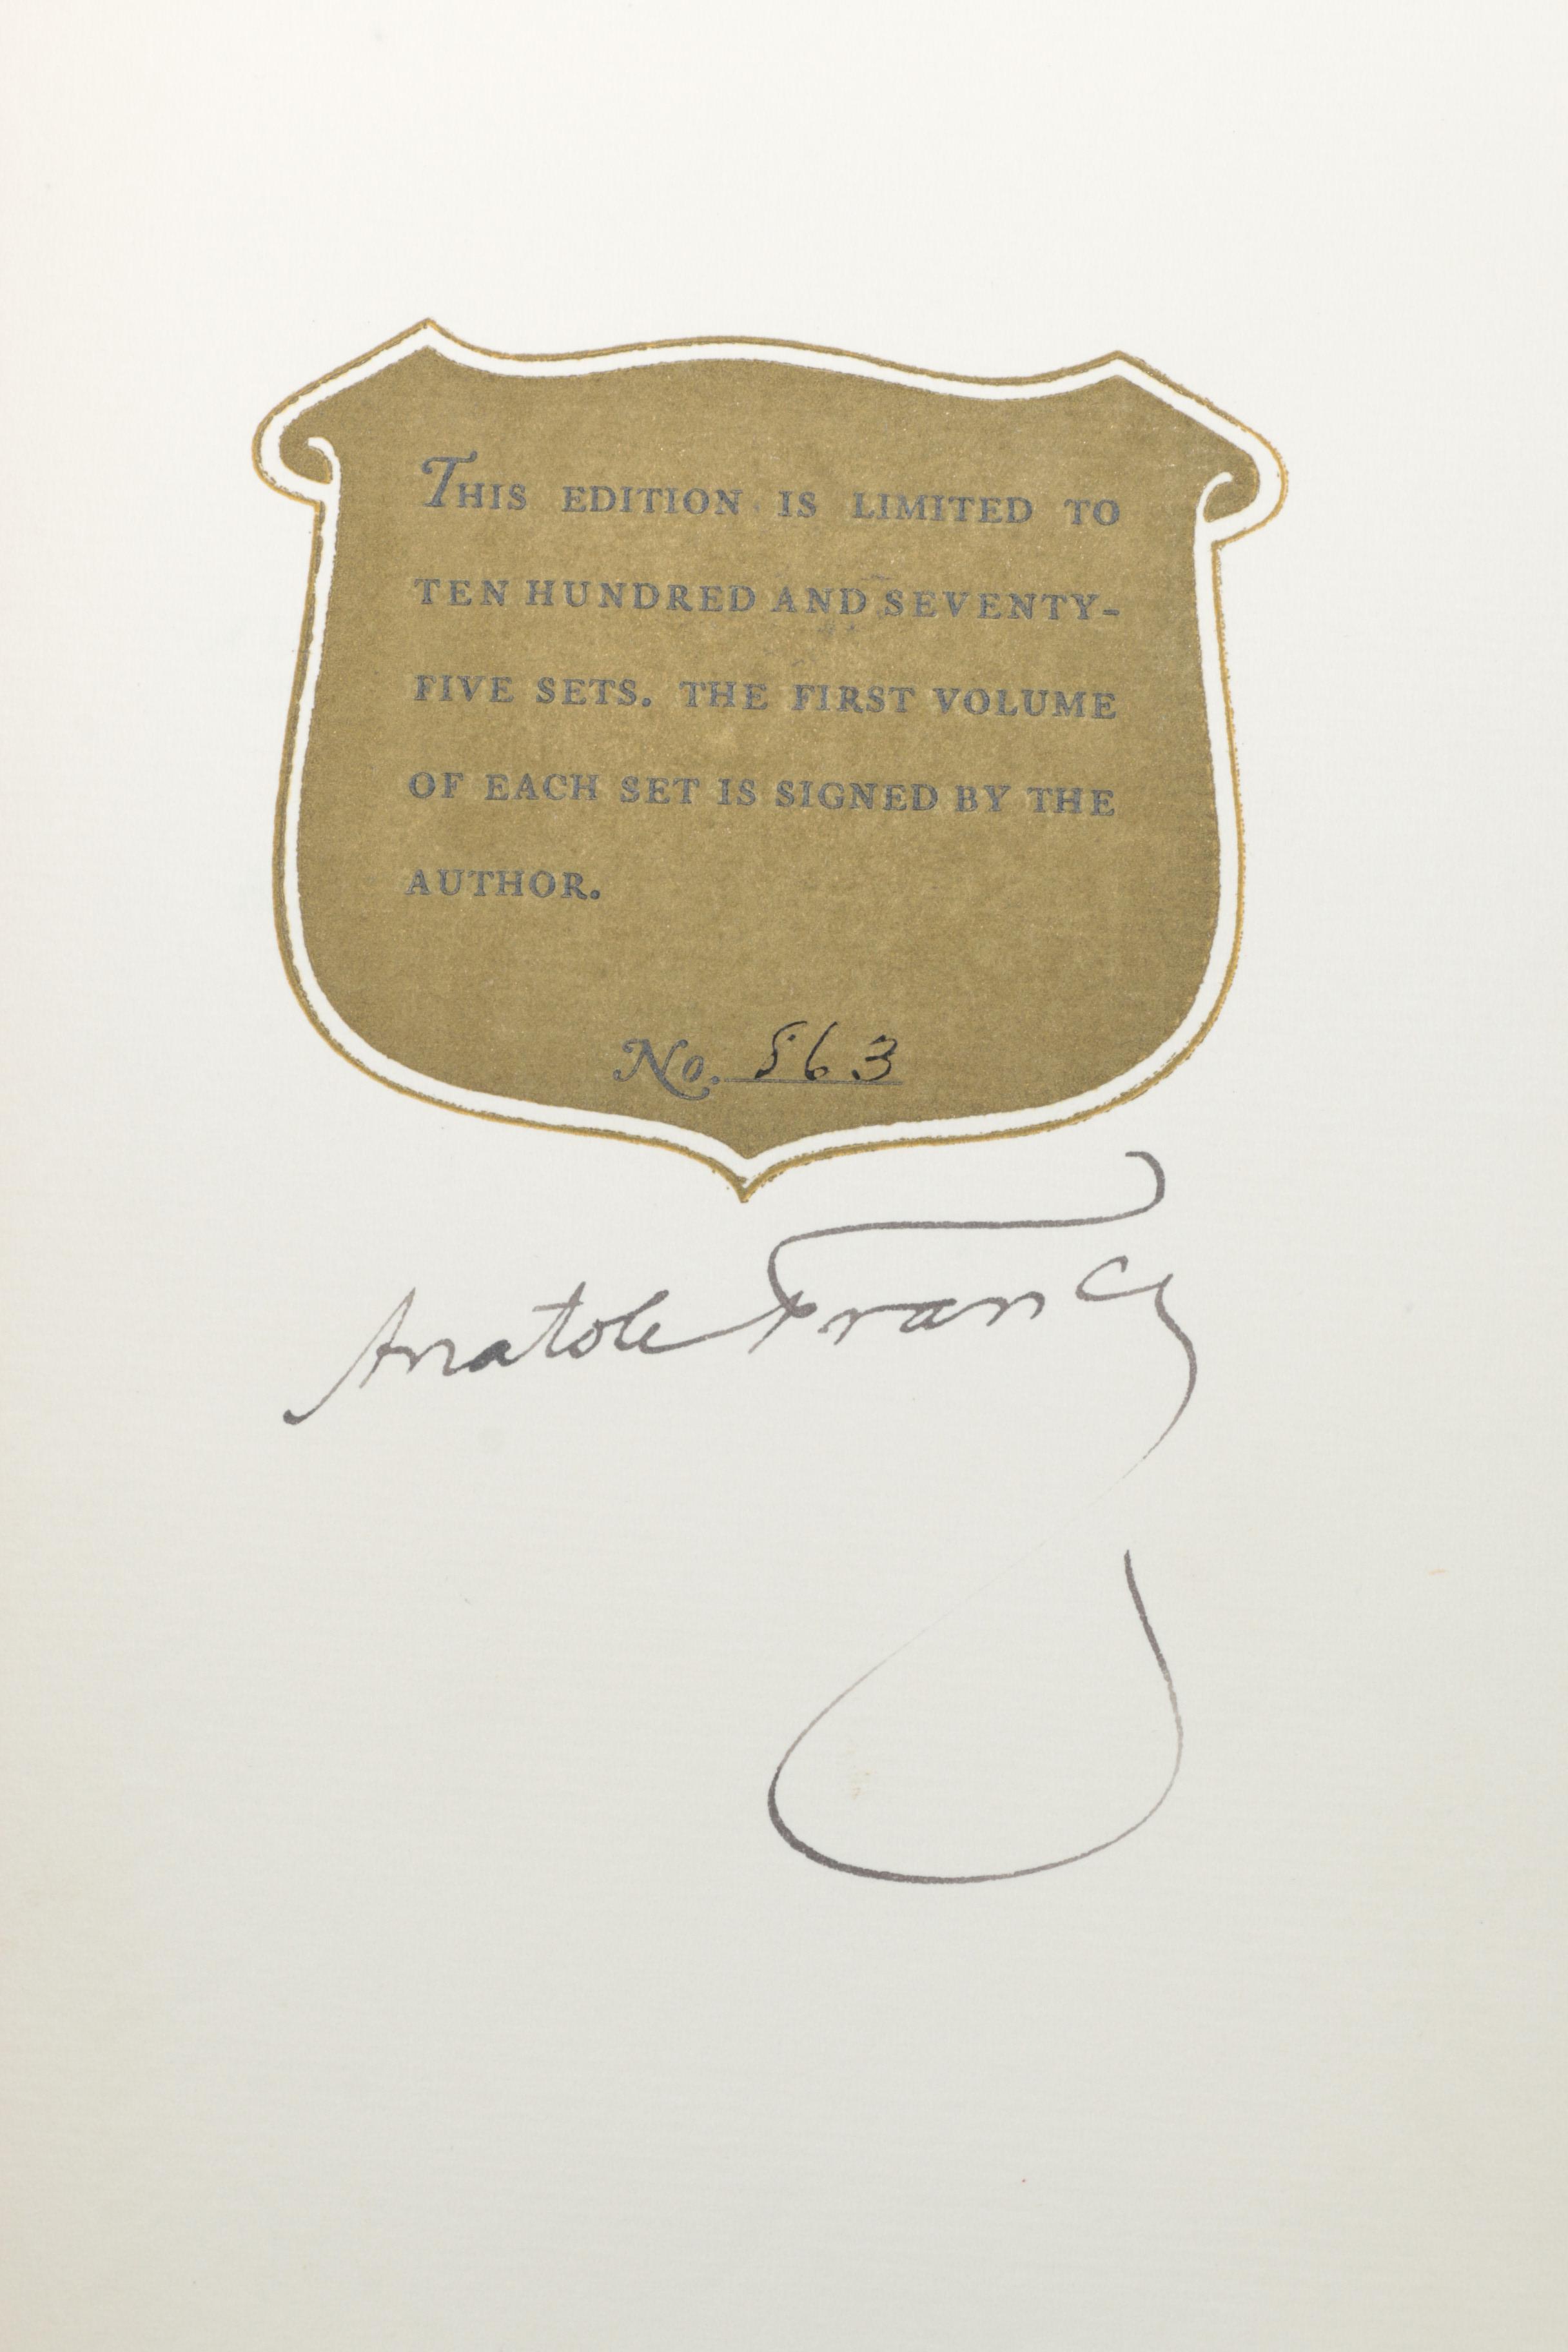 THIS EDITION IS LIMITED TO
TEN HUNDRED AND SEVENTY-
FIVE SETS. THE FIRST VOLUME
OF EACH SET IS SIGNED BY THE
AUTHOR.
No. 563
Anatole France